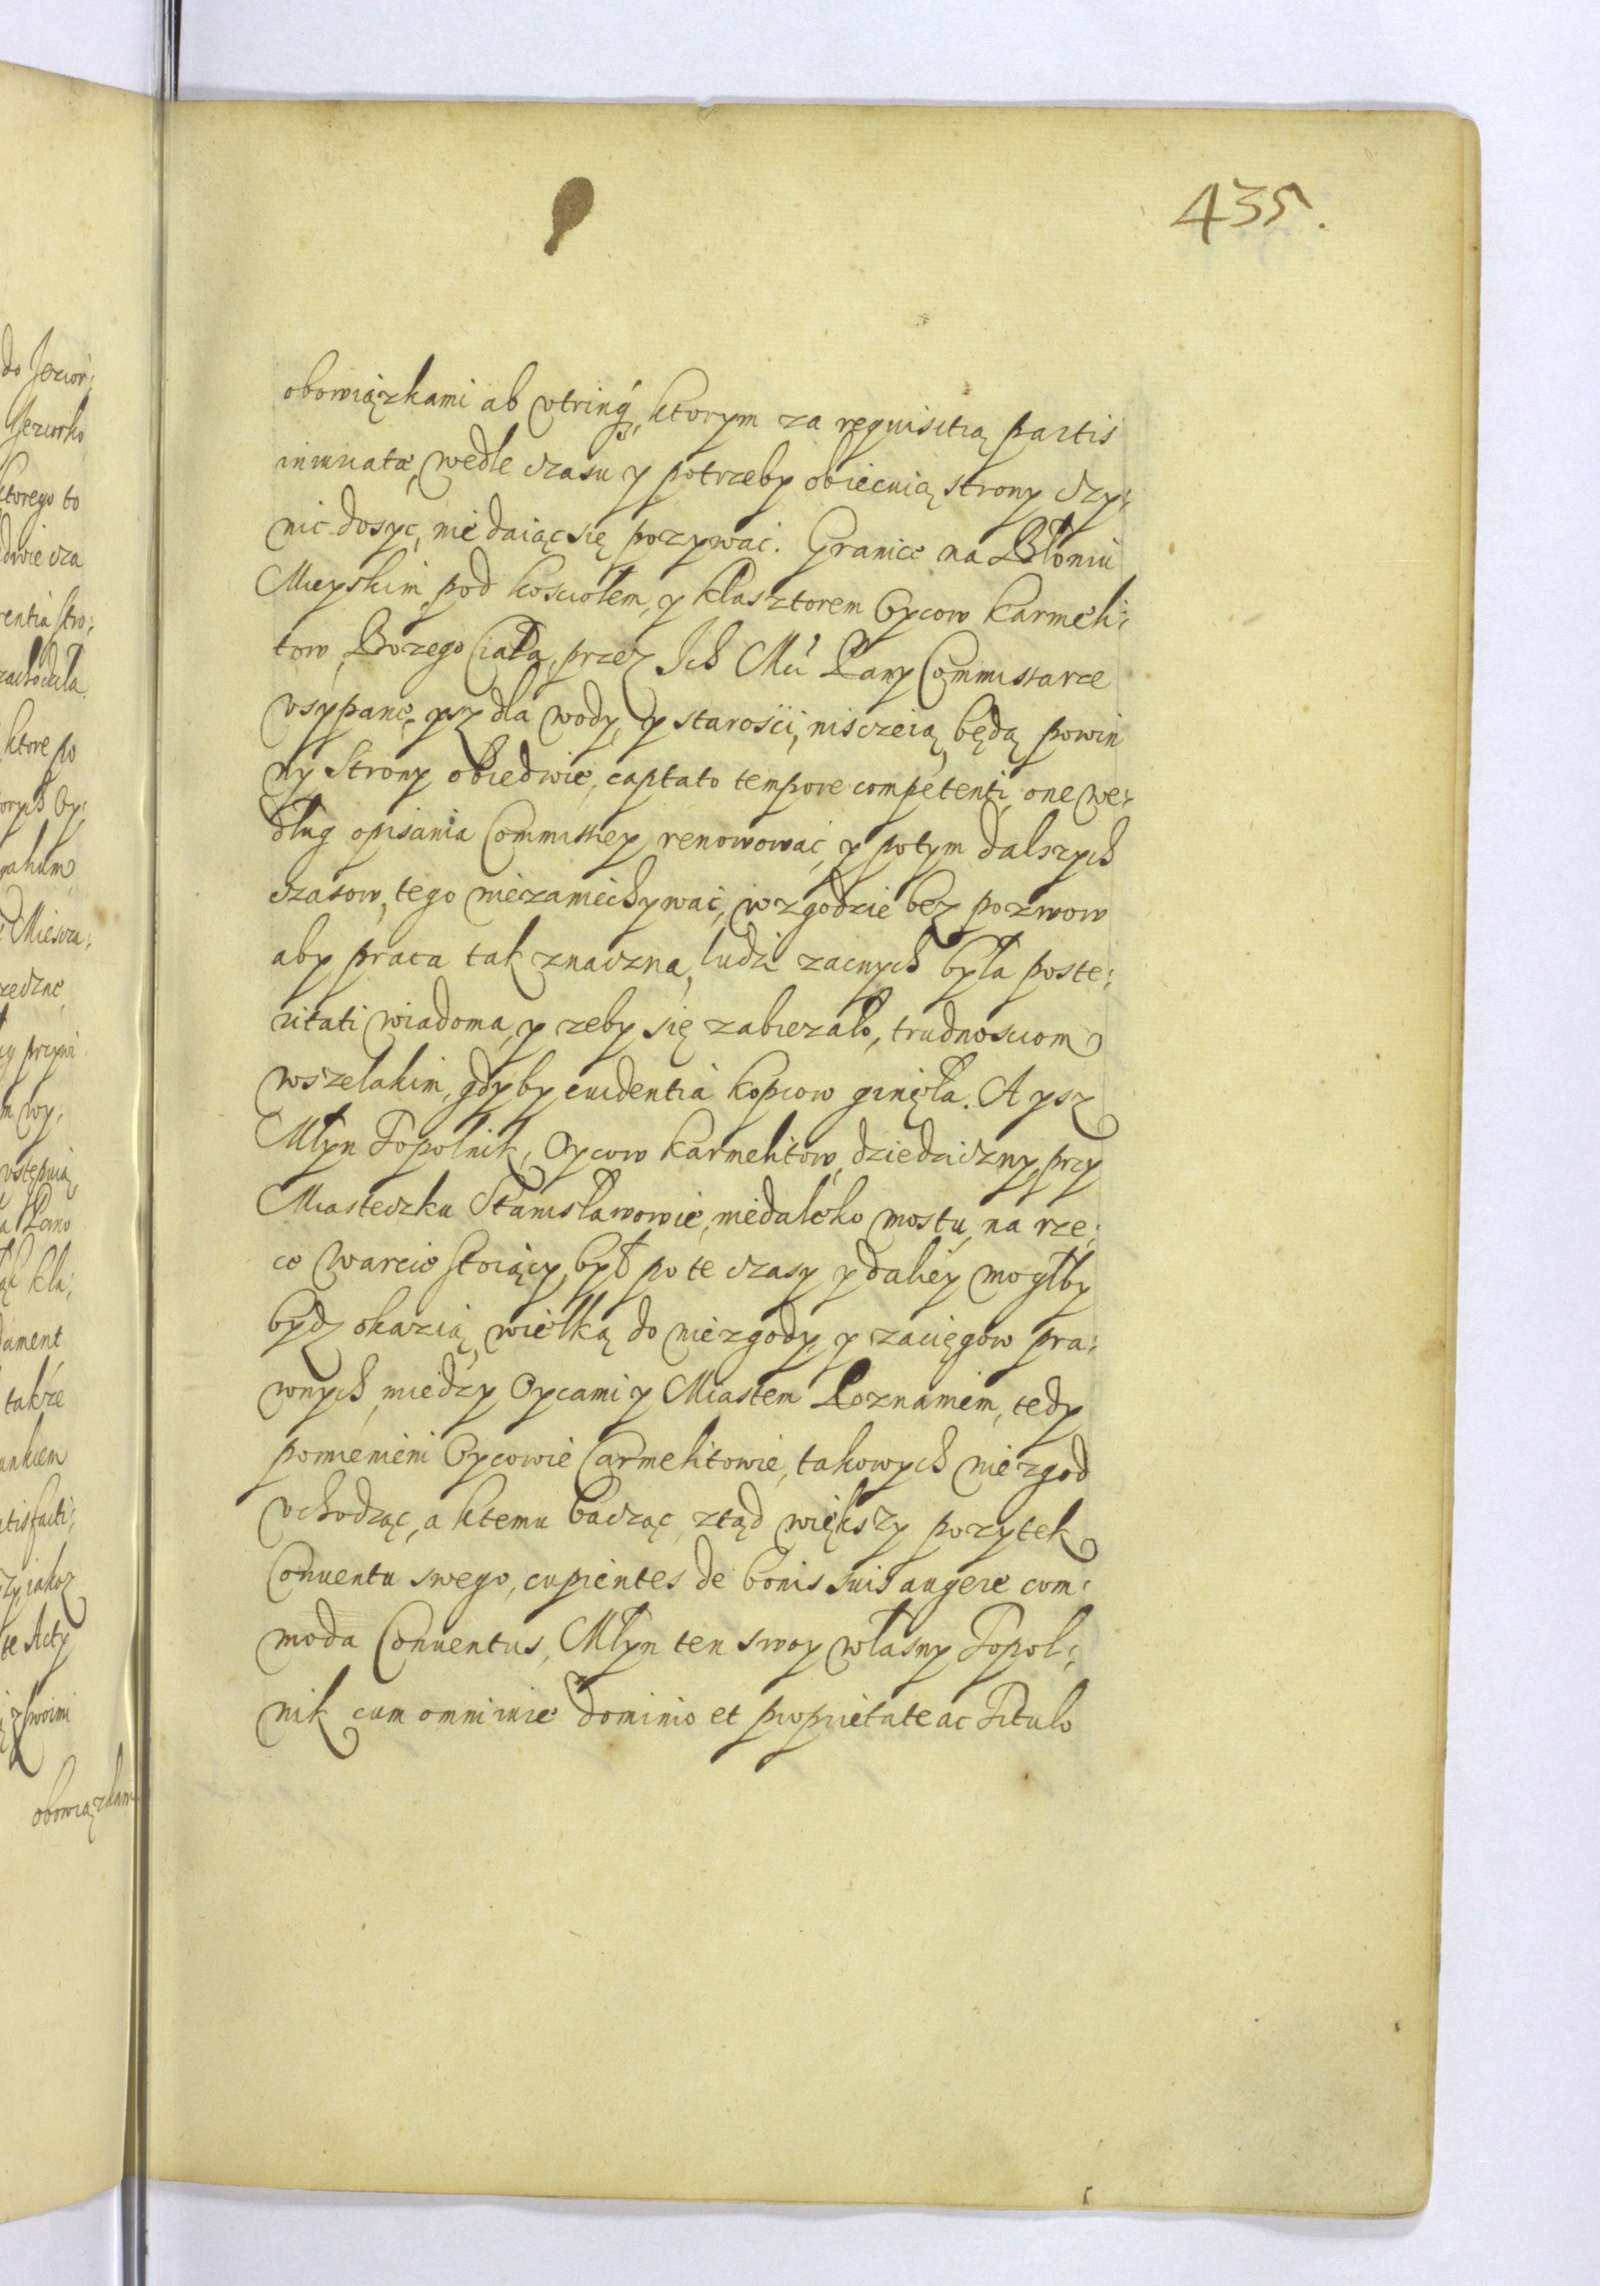 435.
obowiązkami ab vtrinq́, ktorym za requisitią partis
inuuatæ, wedle czasu y potrzeby obiecuią strony czy:
nic dosyc, nie daiąc się pozywac. Granice na Błoniu
Mieyskim, pod kosciołem, y klasztorem Oycow Karmeli:
tow, Bozego Ciała, przez Ich Mći Pany Commissarze
vsypane, ysz dla wody, y starości, niszczeią, będą powin
ny strony obiedwie, captato tempore competenti, one we:
dlug opisania Commissiey, renowować, y potym dalszych
czasow, tego niezaniechywać, w zgodzie bez pozwow
aby praca tak znaczna, ludzi zacnych była poste:
ritati wiadoma, y zeby się zabiezało, trudnosciom
wszelakim, gdyby euidentia kopcow ginęła. A ysz
Młyn Topolnik, Oycow Karmelitow, dziedziczny, przy
Miasteczku Stanisławowie, niedaleko mostu, na rze:
ce Warcie stoiący, był po te czasy y daliey mogłby
bydz okazią, wielką do niezgody, y zaciągow pra:
wnych, miedzy Oycami y Miastem Poznaniem, tedy
pomienieni Oycowie Carmelitowie, takowych niezgod
vchodząc, a ktemu bacząc, ztąd większy pozytek
Conuentu swego, cupientes de bonis suis augere com:
moda Conuentus, Młyn ten swoy własny Topol:
nik cum omni iure dominio et proprietate ac Titulo
do Jezior:
Jeziorko
ktorego to
dwie cza
zachodziła
ktore po
Miescza:
także
te Acty
obowiązkami